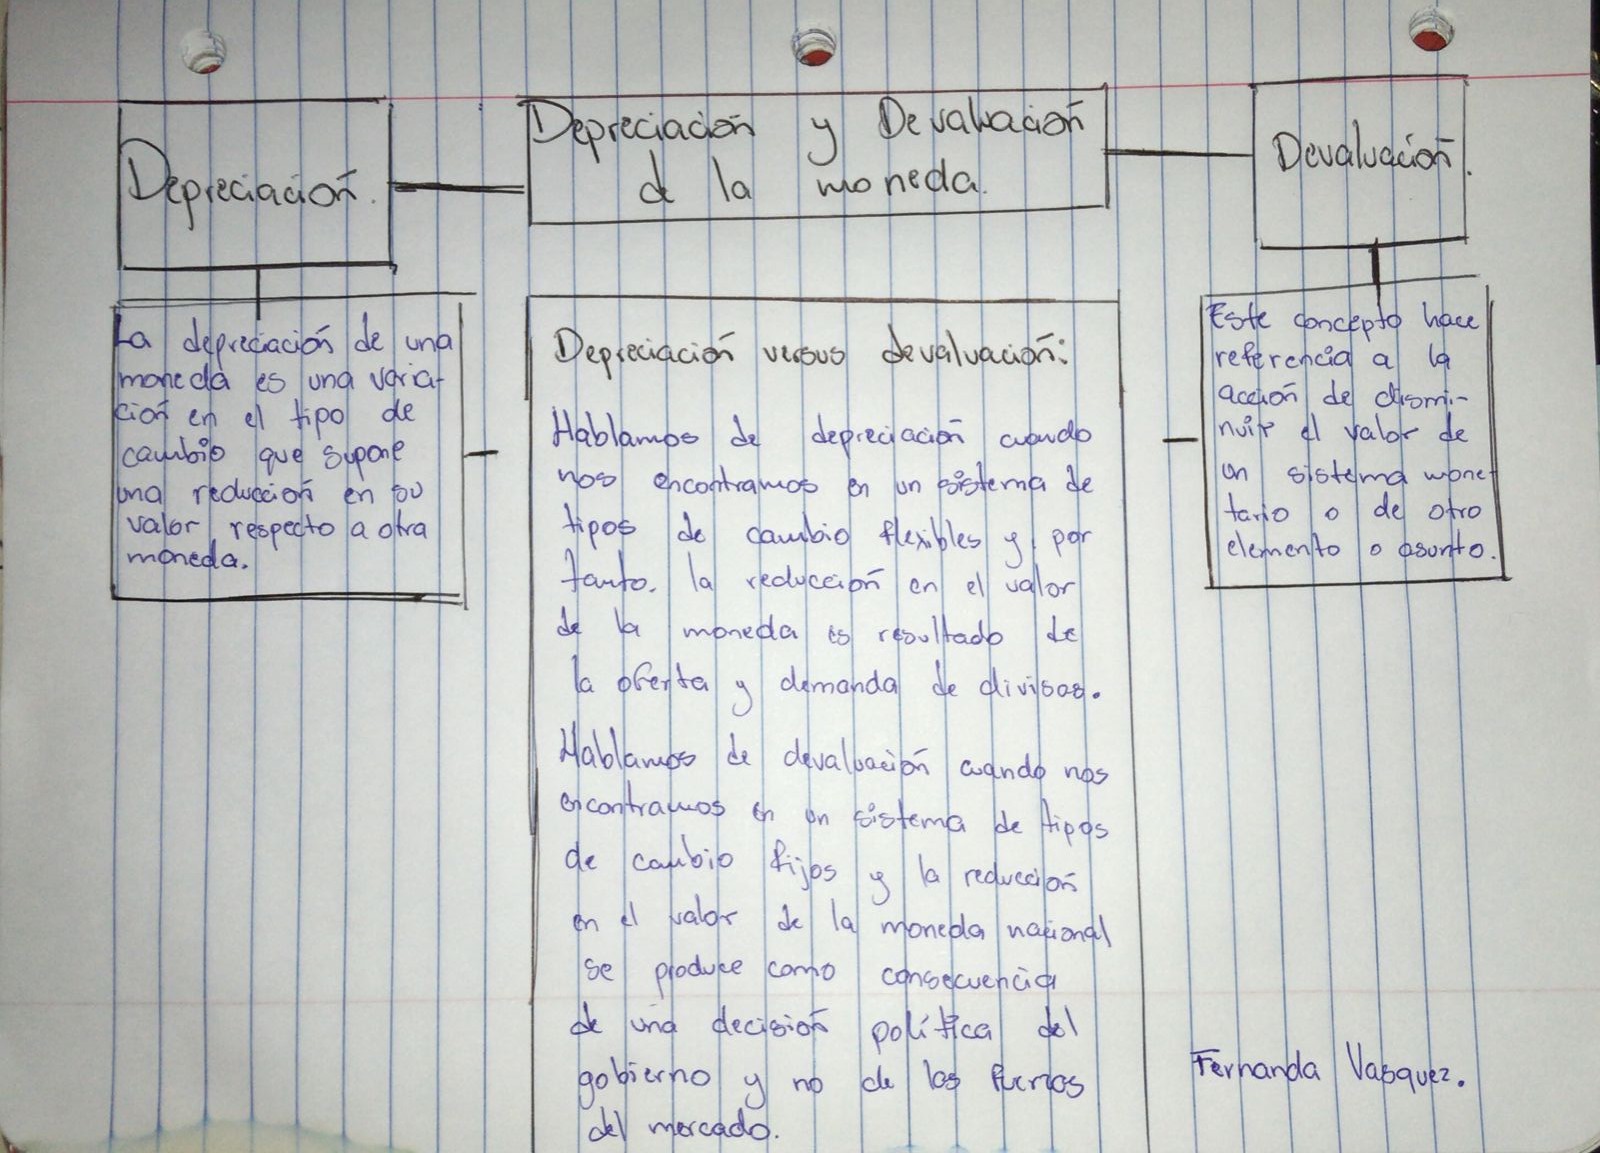 Depreciación y Devaluación
de la moneda.
Depreciación.
La depreciación de una
moneda es una varia-
ción en el tipo de
cambio que supone
una reducción en su
valor respecto a otra
moneda.
Depreciación versus devaluación:
Hablamos de depreciación cuando
nos encontramos en un sistema de
tipos de cambio flexibles y, por
tanto, la reducción en el valor
de la moneda es resultado de
la oferta y demanda de divisas.
Hablamos de devaluación cuando nos
encontramos en un sistema de tipos
de cambio fijos y la reducción
en el valor de la moneda nacional
se produce como consecuencia
de una decisión política del
gobierno y no de las fuerzas
del mercado.
Devaluación.
Este concepto hace
referencia a la
acción de dismi-
nuir el valor de
un sistema mone-
tario o de otro
elemento o asunto.
Fernanda Vasquez.